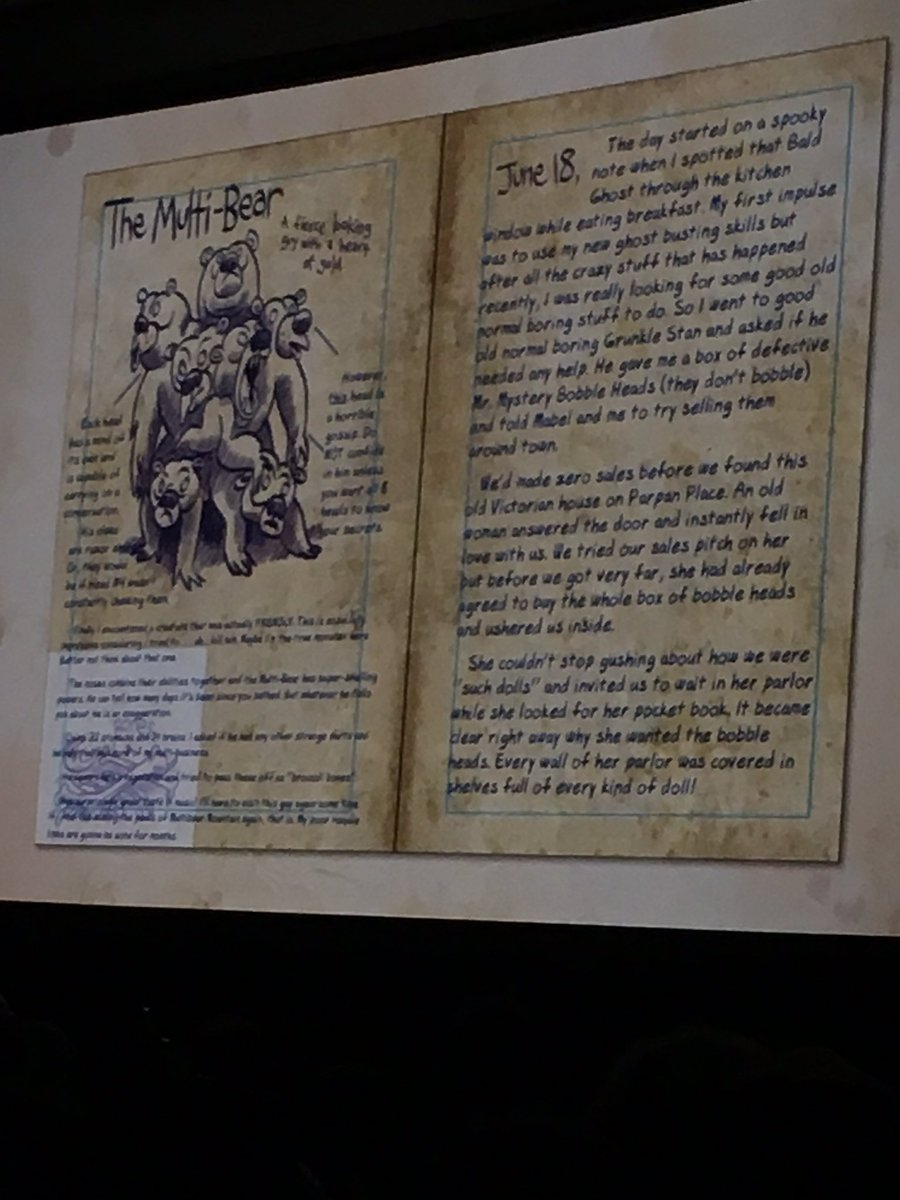 The Multi-Bear
A fierce looking
guy with a heart
of gold.
However,
this head is
a horrible
gossip. Do
NOT confide
in him unless
you want all 8
heads to know
your secrets.
Each head
has a mind of
its own and
is capable of
carrying on a
conversation.
His claws
are razor
Or, they would
be if Head #4 wasn't
constantly chewing them.
Finally I encountered a creature that was actually FRIENDLY. This is especially
impressive considering I tried to ... uh... kill him. Maybe I'm the true monster here.
Better not think about that one.
The noses combine their abilities together and the Multi-Bear has super-smelling
powers. He can tell how many days it's been since you bathed. But whatever he
about me is an exaggeration.
I asked if he had any other strange
of my
tried to pass these off as
taste in music! I'll have to visit this guy again some time.
the peaks of Multibear Mountain again, that is. My poor noodle
are gonna be sore for months.
June 18,
The day started on a spooky
note when I spotted that Bald
Ghost through the kitchen
window while eating breakfast. My first impulse
was to use my new ghost busting skills but
after all the crazy stuff that has happened
recently, I was really looking for some good old
normal boring stuff to do. So I went to good
old normal boring Grunkle Stan and asked if he
needed any help. He gave me a box of defective
Mr. Mystery Bobble Heads (they don't bobble)
and told Mabel and me to try selling them
around town.
We'd made zero sales before we found this
old Victorian house on Parpan Place. An old
woman answered the door and instantly fell in
love with us. We tried our sales pitch on her
but before we got very far, she had already
agreed to buy the whole box of bobble heads
and ushered us inside.
She couldn't stop gushing about how we were
"such dolls" and invited us to wait in her parlor
while she looked for her pocket book. It became
clear right away why she wanted the bobble
heads. Every wall of her parlor was covered in
shelves full of every kind of doll!